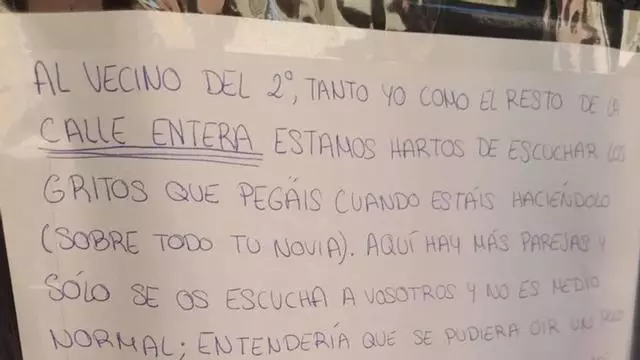 AL VECINO DEL 2º, TANTO YO COMO EL RESTO DE LA
CALLE ENTERA ESTAMOS HARTOS DE ESCUCHAR LOS
GRITOS QUE PEGÁIS CUANDO ESTÁIS HACIÉNDOLO
(SOBRE TODO TU NOVIA). AQUÍ HAY MÁS PAREJAS Y
SÓLO SE OS ESCUCHA A VOSOTROS Y NO ES MEDIO
NORMAL; ENTENDERÍA QUE SE PUDIERA OIR UN